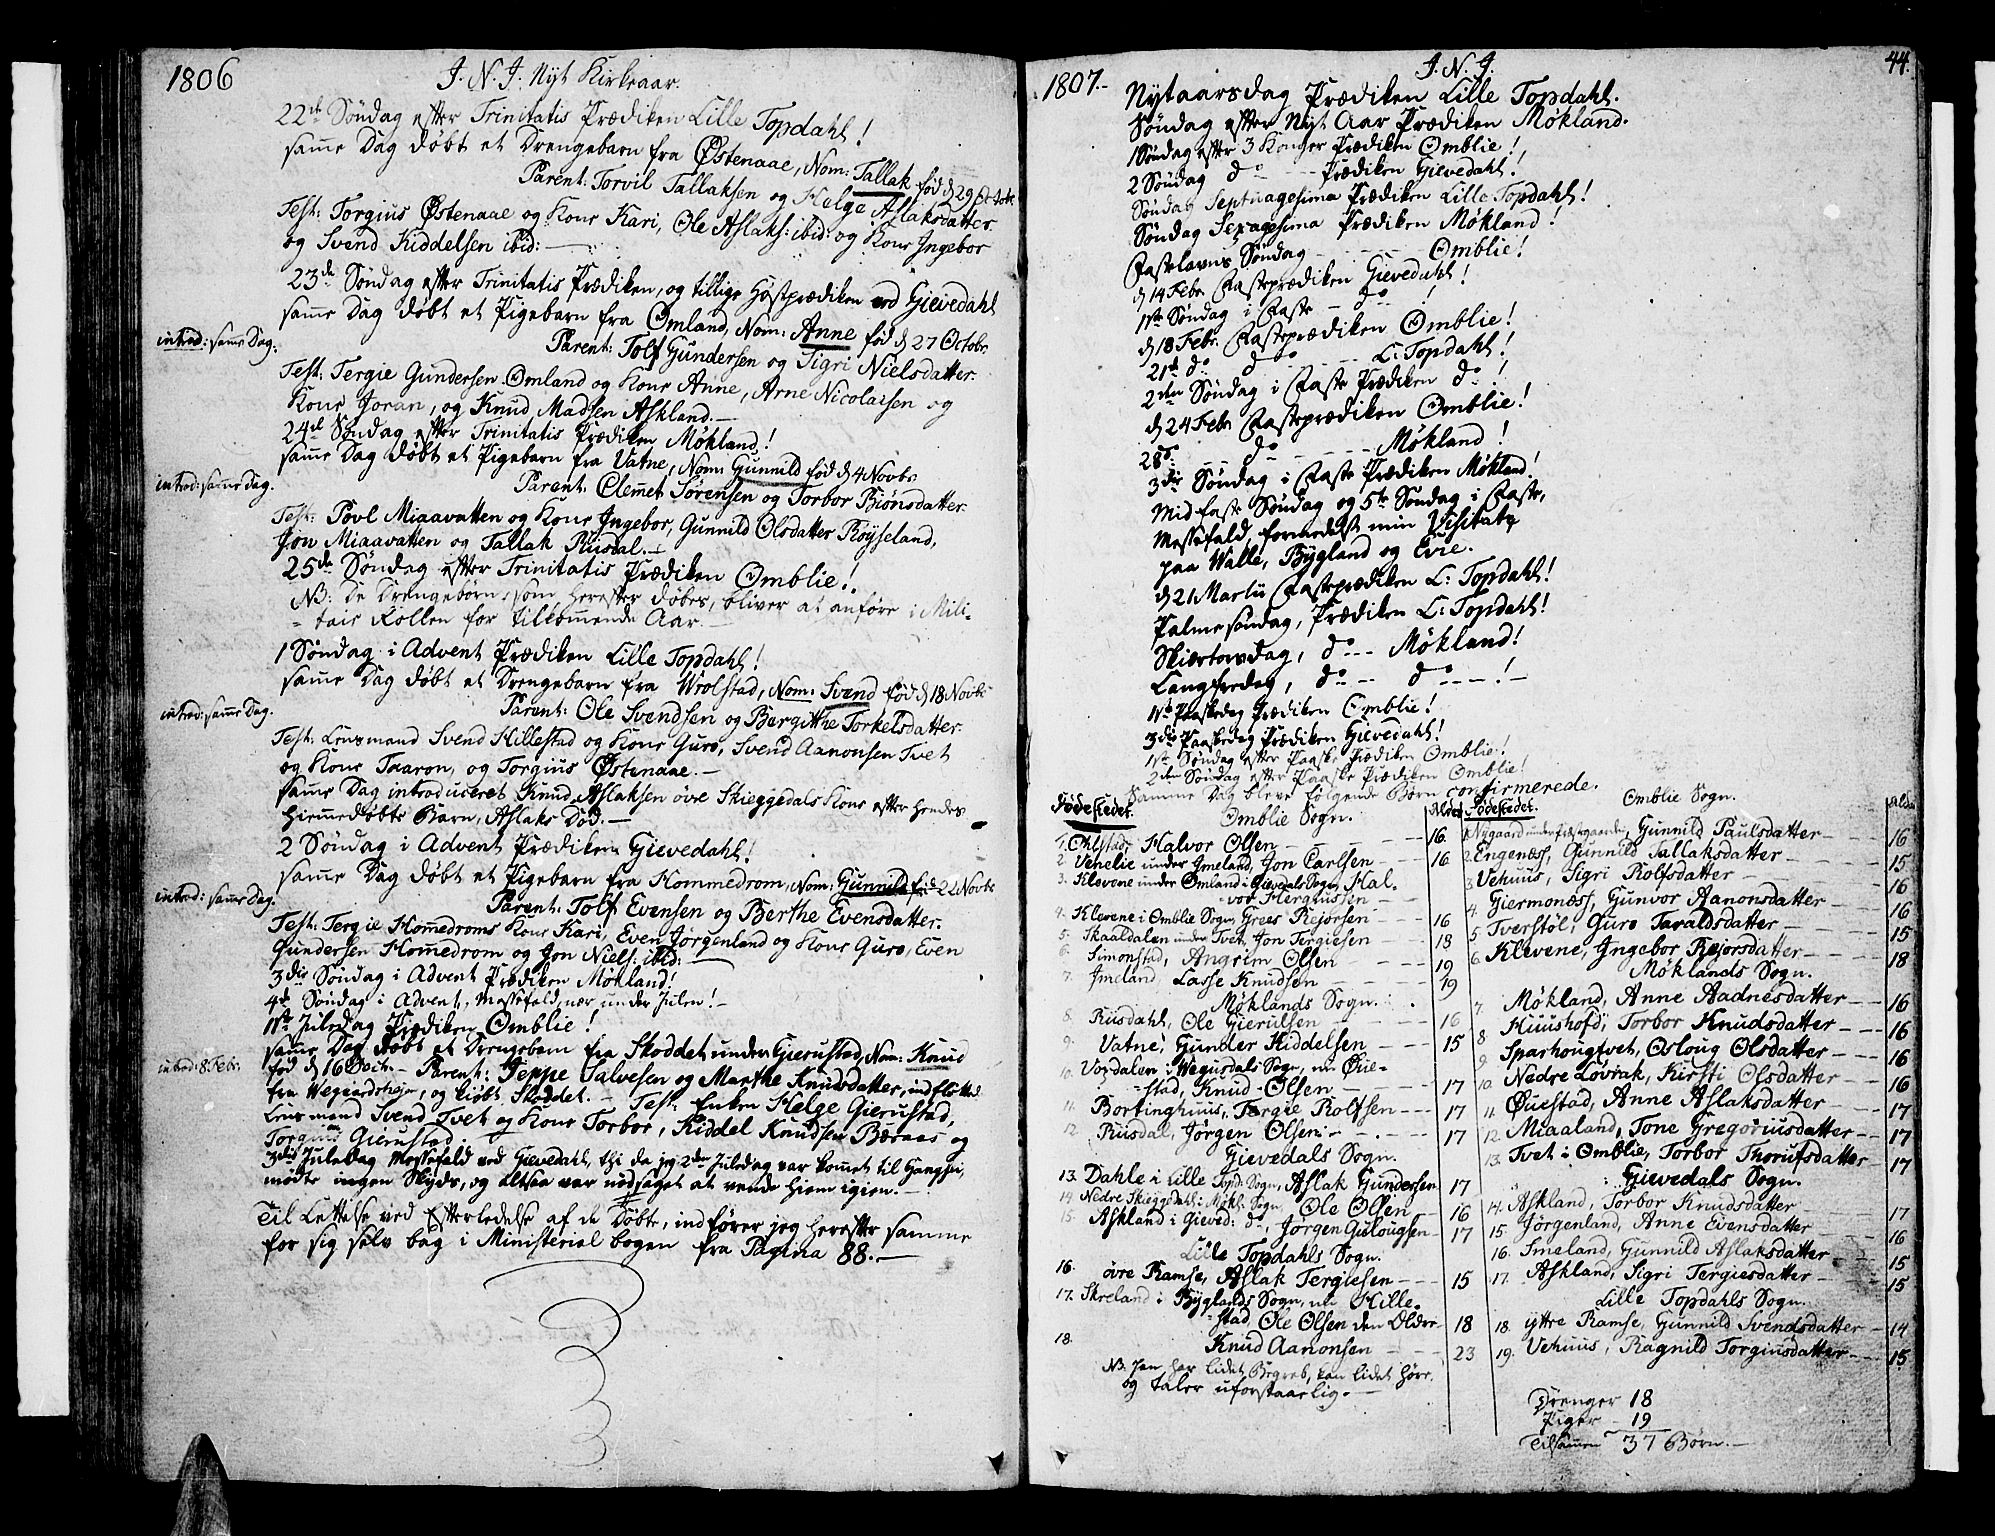 1806
J. N. J. Nyt Kirkeaar.
22de Søndag efter Trinitatis Prædiken Lille Topdahl!
samme Dag døbt et Drengebarn fra Østenaae, Nom: Tallak fød d 29 Octobr
Parent: Torvil Tallaksen og Helge Aslaksdatter
Test: Torgius Østenaae og Kone Kari, Ole Aslaks: ibid: og Kone Ingebor
og Svend Kiddelsen ibid:
23de Søndag efter Trinitatis Prædiken, og tillige Høstprædiken ved Gievedahl
samme Dag døbt et Pigebarn fra Omland, Nom: Anne fød d 27 Octobr.
introd: samme Dag.
Parent: Tolf Gundersen og Sigri Nielsdatter.
Test: Tergie Gundersen Omland og Kone Anne, Arne Nicolaisen og
Kone Joran, og Knud Madsen Askland.
24de Søndag efter Trinitatis Prædiken Møkland!
samme Dag døbt et Pigebarn fra Vatne, Nom: Gunnild fød d 4 Novbr
introd: samme Dag.
Parent: Clemet Sørensen og Torbor Biønsdatter.
Test: Povl Miaavatten og Kone Ingebor, Gunnild Olsdatter Røyseland,
Jon Miaavatten og Tallak Rusdal.
25de Søndag efter Trinitatis Prædiken Omblie!
NB: De Drengebørn, som herefter døbes, bliver at anføre i Mili-
-tair Rollen for tilkommende Aar.
1 Søndag i Advent Prædiken Lille Topdahl!
samme Dag døbt et Drengebarn fra Wrolstad, Nom: Svend fød d 18 Novbr
introd: samme Dag.
Parent: Ole Svendsen og Bergitthe Torkelsdatter.
Test: Lensmand Svend Hillestad og Kone Guro, Svend Aanonsen Tvet
og Kone Taaron, og Torgius Østenaae.
samme Dag introduceret Knud Aslaksen øvre Skieggedals Kone efter hendes
hiemmedøbte Barn, Aslaks Død.
2 Søndag i Advent Prædiken Gievedahl!
samme Dag døbt et Pigebarn fra Hommedrom, Nom: Gunnild fød 22 Novbr
introd: samme Dag.
Parent: Tolf Evensen og Berthe Evensdatter.
Test: Tergie Homedroms Kone Kari, Even Jørgenland og Kone Guro, Even
Gundersen Homedrom og Jon Niels: ibid:
3die Søndag i Advent Prædiken Møkland!
4de Søndag i Advent, Messefald, nær under Julen!
1ste Juledag Prædiken Omblie!
samme Dag døbt et Drengebarn fra Skoddet under Gierustad, Nom: Knud
introd: 8 Febr.
fød d 16 Parent: Jeppe Salvesen og Marthe Knudsdatter, indflyttet
fra og kiøbt Skoddet. Test: Enken Helge Gierustad,
Lensmand Svend Tvet og Kone Torbor, Kiddel Knudsen Beraas og
Torgius Gierustad.
3die Juledag Messefald ved Gievedahl, thi da jeg 2den Juledag var kommet til
mødte ingen Skyds, og altsaa var nødsaget at vende hiem igien.
Til Lettelse ved Efterledelse af de Døbte, indfører jeg herefter samme
for sig selv bag i Ministerial bogen fra Pagina 88.
1807.
J. N. J.
44.
Nytaarsdag Prædiken Lille Topdahl.
Søndag efter Nyt Aar Prædiken Møkland.
1 Søndag efter 3 Konger Prædiken Omblie!
2 Søndag do Prædiken Gievedahl!
Søndag Septuagesima Prædiken Lille Topdahl!
Søndag Sexagesima Prædiken Møkland!
Fastelavns Søndag Omblie!
d 14 Febr. Fasteprædiken Gievedahl!
1ste Søndag i Faste do
d 18 Febr. Fasteprædiken Omblie!
21de do do L: Topdahl!
2den Søndag i Faste Prædiken do!
d 24 Febr. Fasteprædiken Omblie!
28de do Møkland!
3die Søndag i Faste Prædiken Møkland!
Midfaste Søndag og 5te Søndag i Faste,
Messefald, formedelst min Visitatz
paa Walle, Bygland og Evie.
d 21 Martii Fasteprædiken L: Topdahl!
Palmesøndag, Prædiken L: Topdahl!
Skiertorsdag, do Møkland!
Langfredag, do do!
1ste Paaskedag Prædiken Omblie!
3die Paaskedag Prædiken Gievedahl!
1ste Søndag efter Paaske Prædiken Omblie!
2den Søndag efter Paaske Prædiken Omblie!
Samme Dag bleve følgende Børn confirmerede.
Fødestedet. Omblie Sogn. Alder
1. Ohlstad, Halvor Olsen 16.
2. Vehelie under Imeland, Jon Carlsen 16
3. Klevene under Omland i Gievedals Sogn, Hal-
vor Herguussen
4. Klevene i Omblie Sogn, Grees Rejorsen 16
5. Skaaldalen under Tvet, Jon Tergiesen 18
6. Simonstad, Angrim Olsen 19
7. Imeland, Lasse Knudsen 19
Møklands Sogn.
8. Rusdahl, Ole Gierulsen 16
9. Vatne, Gunder Kiddelsen 15
10. Vordalen i Wegusdals Sogn, nu Øue-
-stad, Knud Olsen 17
11. Bortinghuus, Tergie Rolfsen 17
12. Rusdal, Jørgen Olsen 17
Gievedals Sogn.
13. Dahle i Lille Topd: Sogn, Aslak Gundersen 17
14 Nedre Skieggedahl i Møkl: Sogn, Ole Olsen 16
15. Askland i Gieved: do, Jørgen Gulougsen 17
Lille Topdahls Sogn.
16. øvre Ramse, Aslak Tergiesen 15
17. Skreland i Byglands Sogn, nu Hille-
-stad, Ole Olsen den Older 18
18. Knud Aanonsen 23
NB. han har lidet Begreb, kan lidet høre,
og taler uforstaaelig.
Fødestedet. Omblie Sogn. Alder
1. Nygaard under Præstgaarden, Gunnild Paulsdatter 16
2. Engenæss, Gunnild Tallaksdatter 15
3 Vehuus, Sigri Rolfsdatter 16
4. Giermonæss, Gunvor Aanonsdatter 16
5 Tverstøl, Guro Taraldsdatter 15
6. Klevene, Ingebor Rejorsdatter 18
Møklands Sogn.
7. Møkland, Anne Aadnesdatter 16
8 Huushofd, Torbor Knudsdatter 16
9. Sparhougtvet, Osloug Olsdatter 16
10. Nedre Løvrak, Kirsti Olsdatter 16
11. Øuestad, Anne Aslaksdatter 17
12. Miaaland, Tone Gregoriusdatter 17
13. Tvet i Omblie, Torbor Thorufsdatter 17
Gievedals Sogn.
14. Askland, Torbor Knudsdatter 17
15. Jørgenland, Anne Evensdatter 16
16. Imeland, Gunnild Aslaksdatter 15
17. Askland, Sigri Tergiesdatter 15
Lille Topdahls Sogn.
18. yttre Ramse, Gunnild Svendsdatter 14
19. Vehuus, Ragnild Torgiusdatter 15
Drenger 18
Piger 19
Tilsammen 37 Børn.